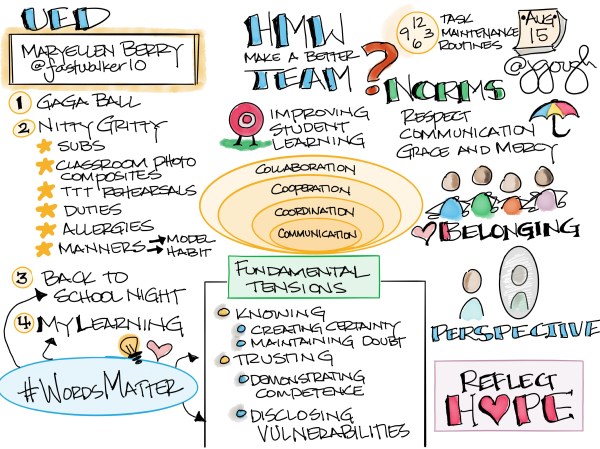 UED
MARYELLEN BERRY
@fastwalker10
1 GAGA BALL
2 NITTY GRITTY
SUBS
CLASSROOM PHOTO
COMPOSITES
TTT REHEARSALS
DUTIES
ALLERGIES
MANNERS → MODEL
HABIT
3 BACK TO
SCHOOL NIGHT
4 MY LEARNING
#WORDSMATTER
HMW
MAKE A BETTER
TEAM ?
IMPROVING
STUDENT
LEARNING
COLLABORATION
COOPERATION
COORDINATION
COMMUNICATION
FUNDAMENTAL
TENSIONS
KNOWING
CREATING CERTAINTY
MAINTAINING DOUBT
TRUSTING
DEMONSTRATING
COMPETENCE
DISCLOSING
VULNERABILITIES
12
9 3
6
TASK
MAINTENANCE
ROUTINES
AUG
15
@jgough
NORMS
RESPECT
COMMUNICATION
GRACE AND MERCY
BELONGING
PERSPECTIVE
REFLECT
HOPE